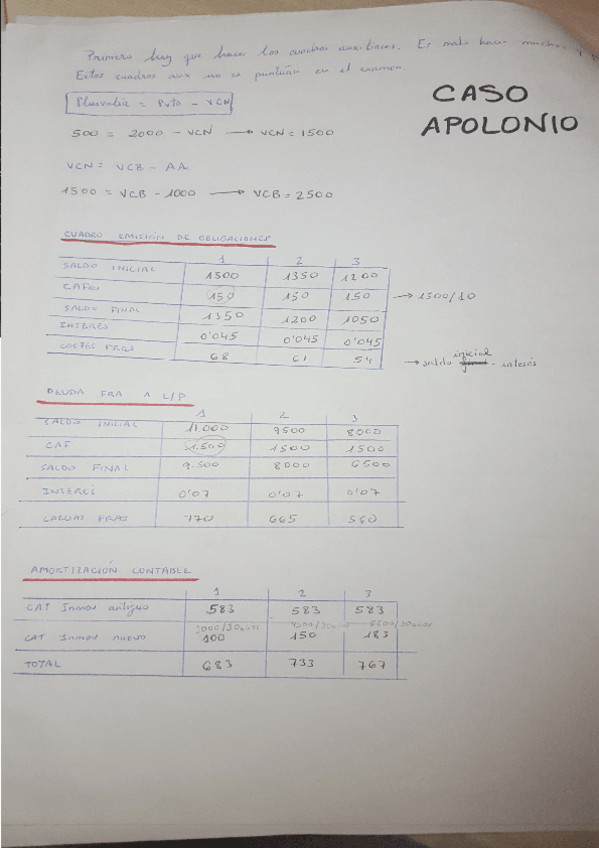 Primero hay que hacer los cuadros auxiliares. Es malo hacer muchos y
Estos cuadros aux no se puntúan en el examen.
CASO
APOLONIO
Plusvalía = Pvta - VCN
500 = 2000 - VCN → VCN = 1500
VCN = VCB - AA
1500 = VCB - 1000 → VCB = 2500
CUADRO EMISIÓN DE OBLIGACIONES
1 2 3
SALDO INICIAL 1500 1350 1200
150 150 150 → 1500/10
SALDO FINAL 1350 1200 1050
INTERÉS 0'045 0'045 0'045
COSTES FROS 68 61 54 → saldo inicial - interés
DEUDA FRA A L/P
1 2 3
SALDO INICIAL 11.000 9500 8000
CAF 1.500 1500 1500
SALDO FINAL 9.500 8000 6500
INTERÉS 0'07 0'07 0'07
CARGAS FRAS 770 665 560
AMORTIZACIÓN CONTABLE
1 2 3
CAT Inmov antiguo 583 583 583
3000/30años
CAT Inmov nuevo 100 150 183
TOTAL 683 733 767